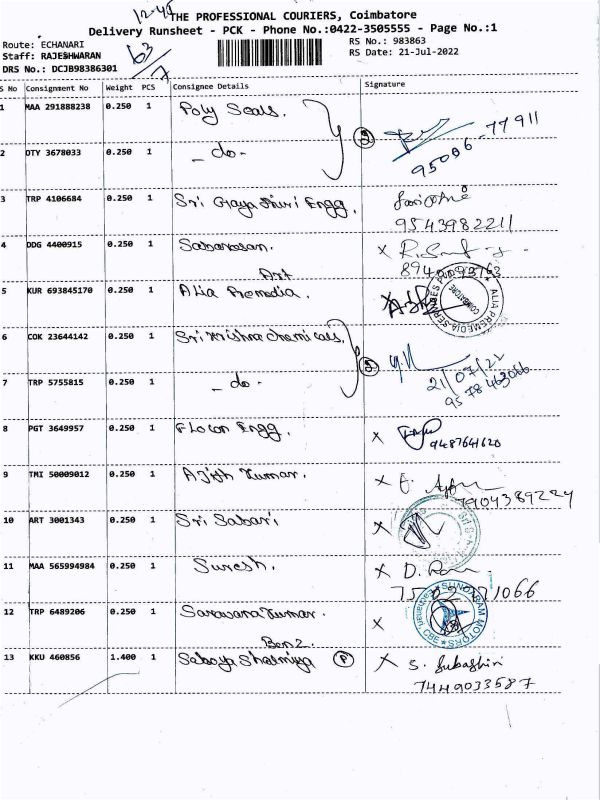 12-45
THE PROFESSIONAL COURIERS, Coimbatore
Delivery Runsheet - PCK - Phone No.:0422-3505555 - Page No.:1
Route: ECHANARI
RS No.: 983863
Staff: RAJESHWARAN
RS Date: 21-Jul-2022
DRS No.: DCJB98386301
63/7
S No Consignment No Weight PCS Consignee Details Signature
1 MAA 291888238 0.250 1 Poly Seals.
2 95006-77911
2 DTY 3678033 0.250 1 - do -
3 TRP 4106684 0.250 1 Sri Gayathiri Engg.
9543982211
4 DDG 4400915 0.250 1 Sabarasan. X
Art
5 KUR 693845170 0.250 1 Alia Premedia. X
ALIA PREMEDIA SERVICES COIMBATORE
6 COK 23644142 0.250 1 Sri Krishna Chemicals.
2 21/07/22
7 TRP 5755815 0.250 1 - do -
9578463066
8 PGT 3649957 0.250 1 Flocon Engg. X
9487641620
9 TMI 50009012 0.250 1 Ajith Kumar. X
7904389224
10 ART 3001343 0.250 1 Sri Sabari X
11 MAA 565994984 0.250 1 Suresh. X D.
12 TRP 6489206 0.250 1 Saravana Kumar. X
SUNDARAM MOTORS CBE
Benz.
13 KKU 460856 1.400 1 P X S. Subashini
7449033587